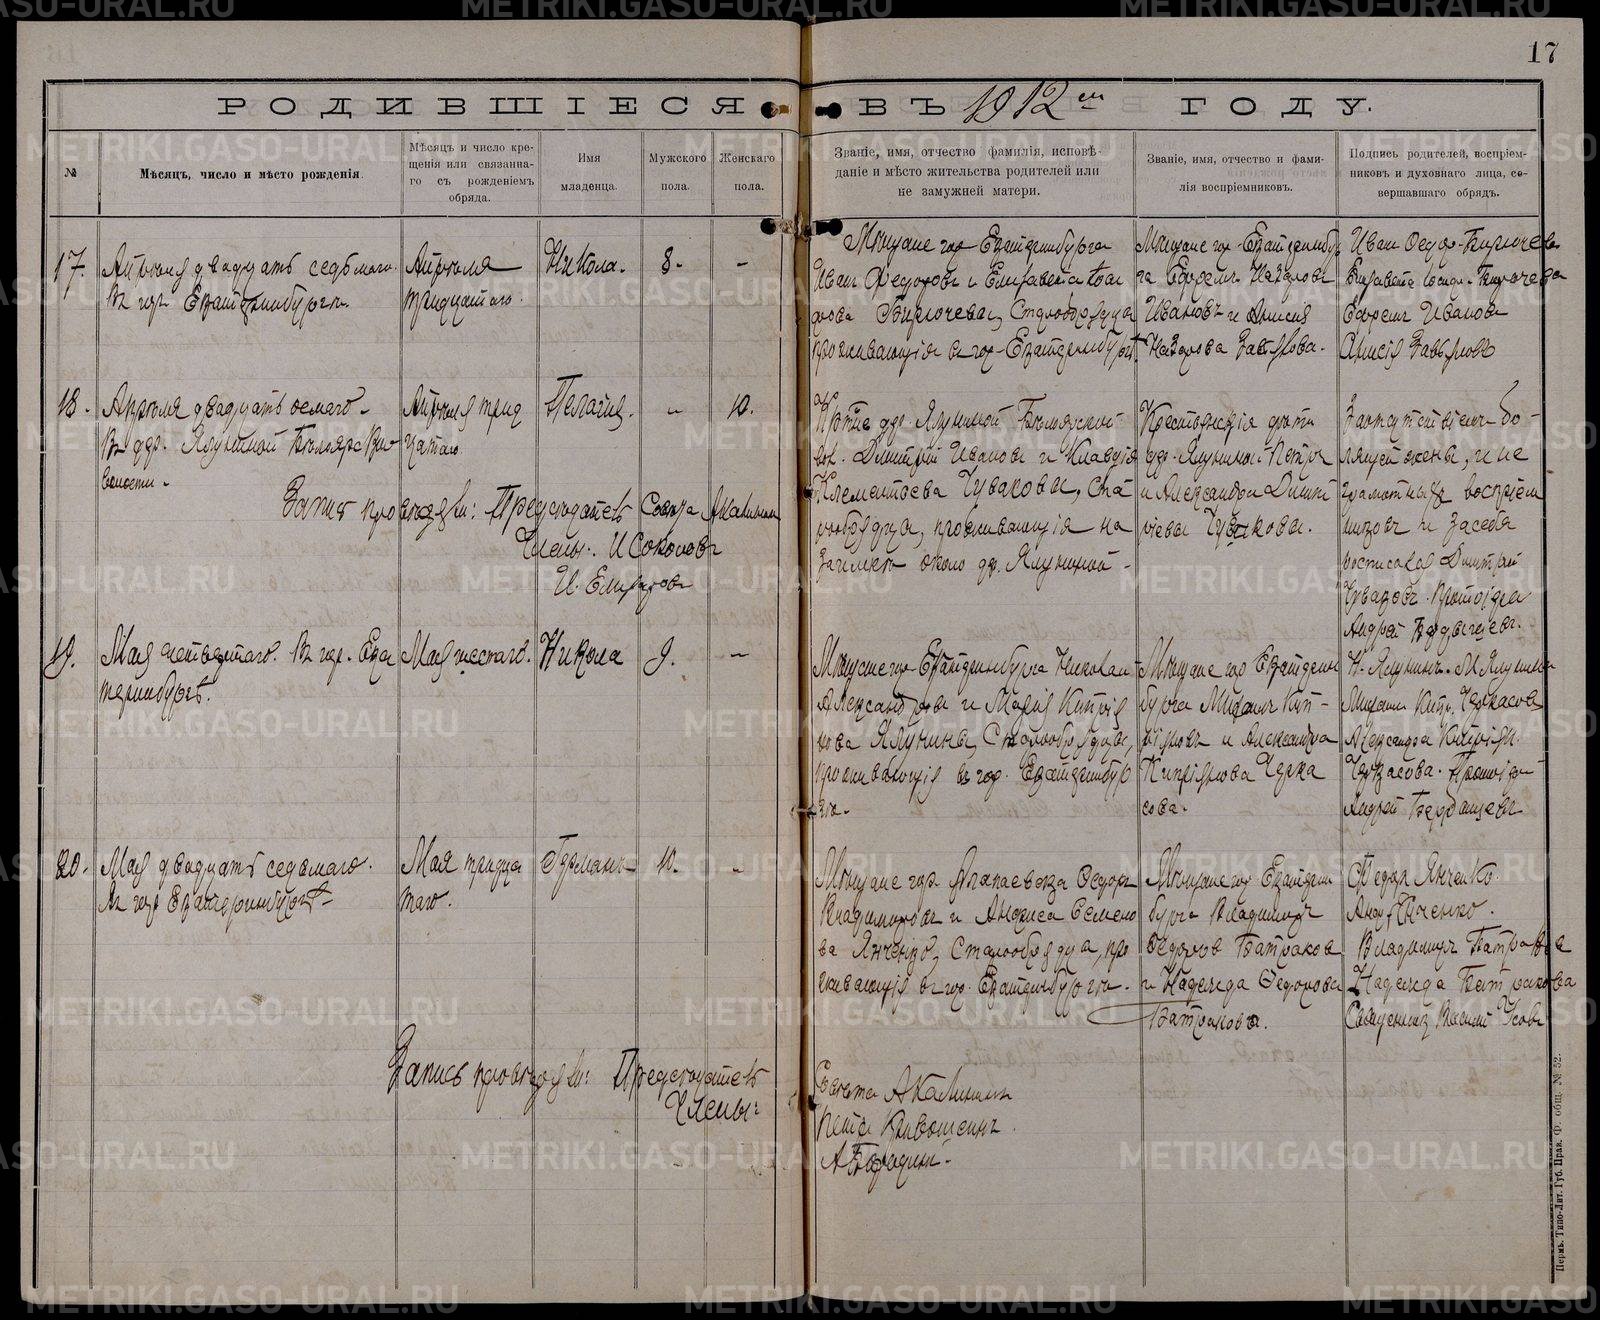 17
РОДИВШІЕСЯ ВЪ 1912ом ГОДУ.
№
Мѣсяцъ, число и мѣсто рожденія.
Мѣсяцъ и число кре-
щенія или связанна-
го съ рожденіемъ
обряда.
Имя
младенца.
Мужского
пола.
Женскаго
пола.
Званіе, имя, отчество фамилія, исповѣ-
даніе и мѣсто жительства родителей или
не замужней матери.
Званіе, имя, отчество и фами-
лія воспріемниковъ.
Подпись родителей, воспріем-
никовъ и духовнаго лица, со-
вершавшаго обрядъ.
17.
Апрѣля двадцать седьмого.
Въ гор. Екатеринбургѣ.
Апрѣля
тридцатого.
Никола.
8.
-
Мѣщане гор. Екатеринбурга
Иванъ Ѳедоровъ и Елизавета
Бирючевы, Старообрядцы
проживающія въ гор. Екатеринбургѣ.
Мѣщане гор. Екатеринбур
га Ефремъ Назаровъ
Ивановъ и Анисія
Назарова
Иванъ Ѳедор. Бирючевъ
Елизавета Бирючева
Ефремъ Ивановъ
Анисія
18.
Апрѣля двадцать осмаго.
Въ дер. Ялуниной
волости.
Апрѣля трид
цатаго
Пелагія.
-
10.
дер. Ялуниной
вол. Дмитрій Ивановъ и Клавдія
Клементьева Чуваковы, Ста
рообрядцы, проживающія на
заимкѣ около др. Ялуниной.
Крестьянскія дѣти
дер. Ялуниной Петръ
и Александра Дмит
ріевы Чуваковы.
За отсутствіемъ бо-
лящей жены, и не
грамотныхъ воспріем
никовъ и за себя
росписался Дмитрій
Чуваковъ. Протоіерей
Андрей
Запись провѣряли: Предсѣдатель Совѣта А Калининъ
Члены: И Соколовъ
И.
19.
Мая четвертаго. Въ гор. Ека
теринбургѣ.
Мая шестаго.
Никола
9.
-
Мѣщане гор. Екатеринбурга Николай
Александровъ и Марія Кипрія
нова Ялунины, Старообрядцы,
проживающія въ гор. Екатеринбур
гѣ.
Мѣщане гор Екатерин
бурга Михаилъ Кип-
ріяновъ и Александра
Кипріянова Черка
сова.
Н. Ялунинъ. М Ялунина
Михаилъ Кипр. Черкасовъ
Александра Кипріян.
Черкасова. Протоіер.
Андрей
20.
Мая двадцать седьмаго.
Въ гор Екатеринбургѣ
Мая тридца
таго.
Германъ
10.
-
Мѣщане гор. Алапаевска Ѳедоръ
Владиміровъ и Анфиса Семено
ва Янченко, Старообрядцы, про
живающія въ гор. Екатеринбургѣ.
Мѣщане гор Екатерин
бурга Владиміръ
Ѳедоровъ Батраковъ
и Надежда Ѳедорова
Батракова.
Федоръ Янченко.
Янченко.
Владиміръ Батраковъ
Надежда Батракова
Священникъ Василій Усовъ
Запись провѣряли: Предсѣдатель Совѣта А Калининъ
Члены: Петръ
А Бородинъ.
Пермь. Типо-Лит. Губ. Прав. Ф. общ. № 52.
METRIKI.GASO-URAL.RU